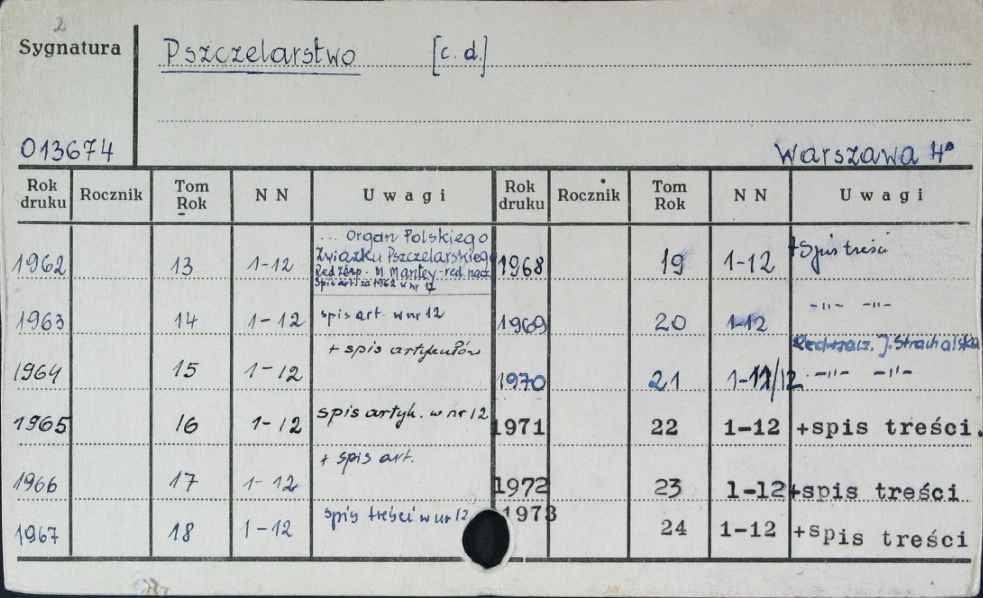 2
Sygnatura
Pszczelarstwo [c. d.]
013674
Warszawa 4°
Rok druku Rocznik Tom Rok N N Uwagi Rok druku Rocznik Tom Rok N N Uwagi
... Organ Polskiego
Związku Pszczelarskiego
Red. zesp. M. Mantey - red. nacz.
Spis art. za 1962 w nr 12
1962 13 1-12
1968 19 1-12 + Spis treści
1963 14 1-12 spis art. w nr 12
1969 20 1-12 -"- -"-
1964 15 1-12 + spis artykułów
Red. nacz. J. Strachalska
1970 21 1-11/12 -"- -"-
1965 16 1-12 spis artyk. w nr 12
1971 22 1-12 +spis treści.
1966 17 1-12 + spis art.
1972 23 1-12 +spis treści
1967 18 1-12 spis treści w nr 12
1973 24 1-12 +spis treści